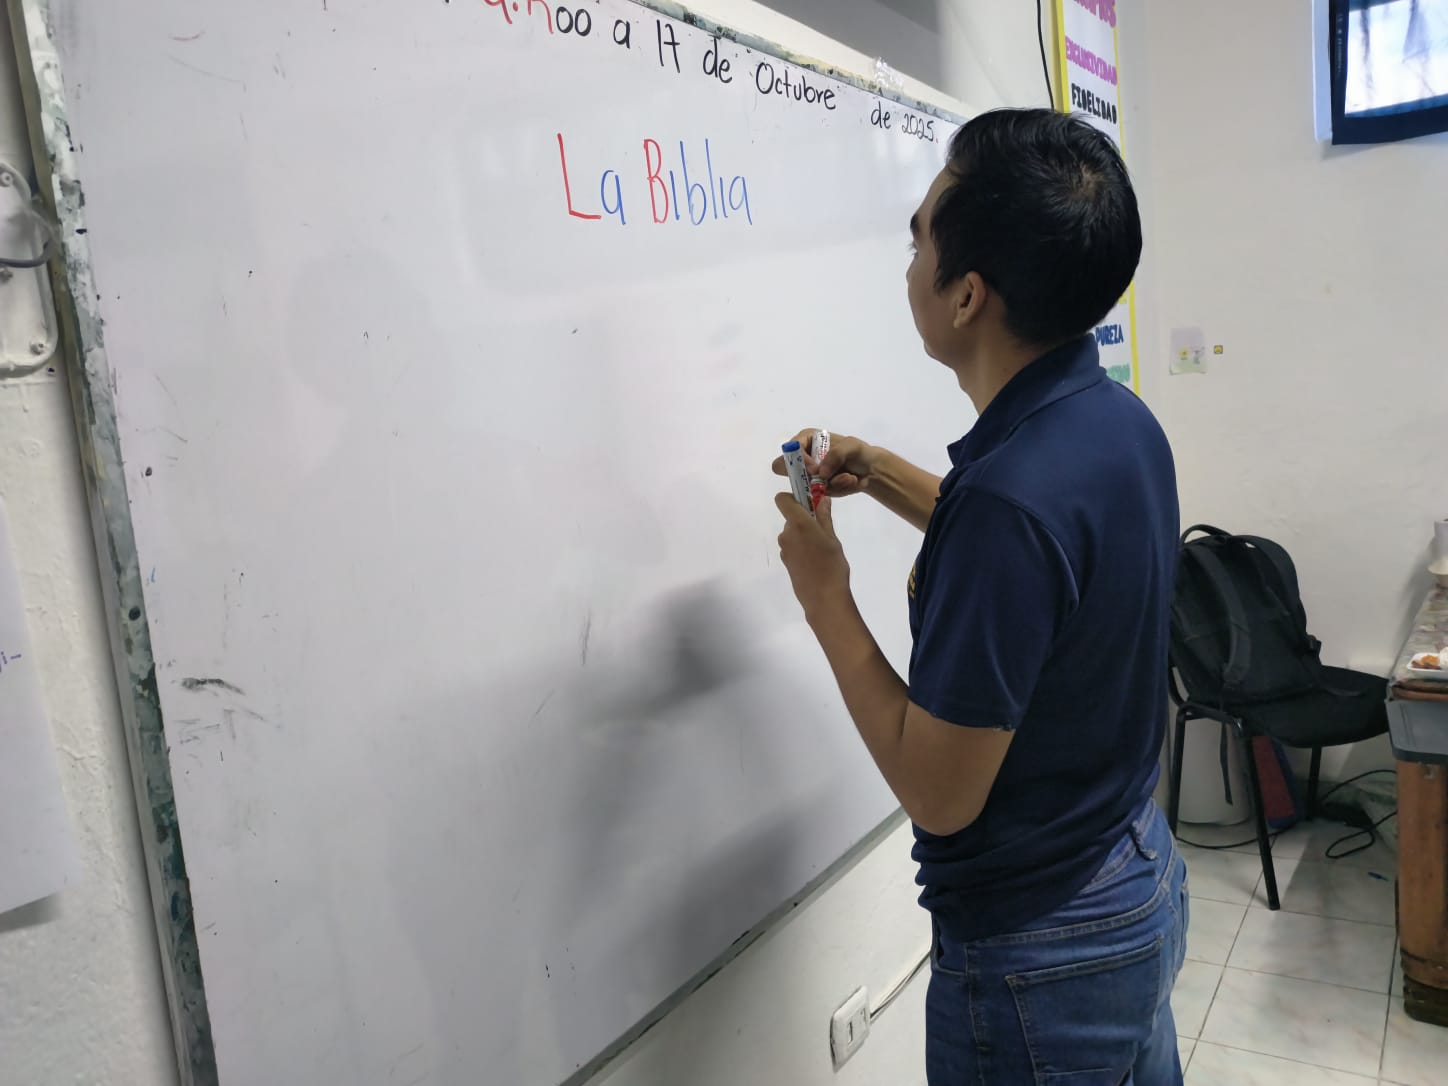 a 17 de Octubre de 2025.
La Biblia
EXCLUSIVIDAD
FIDELIDAD
PUREZA